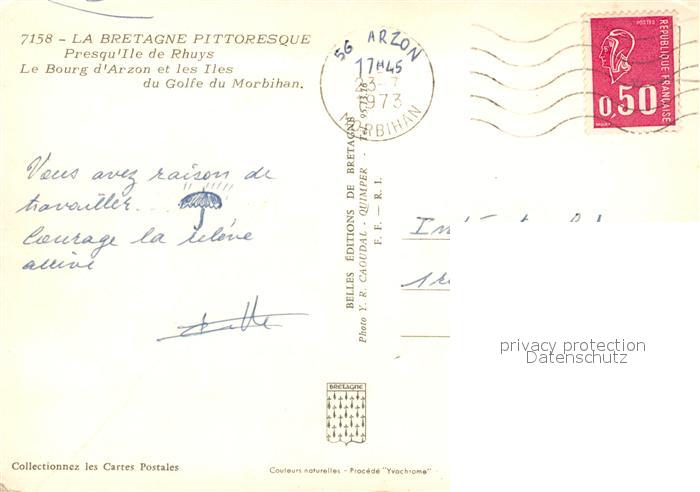 7158 - LA BRETAGNE PITTORESQUE
Presqu'Ile de Rhuys
Le Bourg d'Arzon et les Iles
du Golfe du Morbihan.
56 ARZON
17H45
23-7
1973
MORBIHAN
POSTES
REPUBLIQUE FRANÇAISE
0,50
Vous avez raison de
travailler..
Courage la relève
arrive
BELLES ÉDITIONS DE BRETAGNE
Photo Y. R. CAOUDAL - QUIMPER - Tél. 95
F. F. — R. I.
privacy protection
Datenschutz
BRETAGNE
Collectionnez les Cartes Postales
Couleurs naturelles - Procédé "Yvochrome"